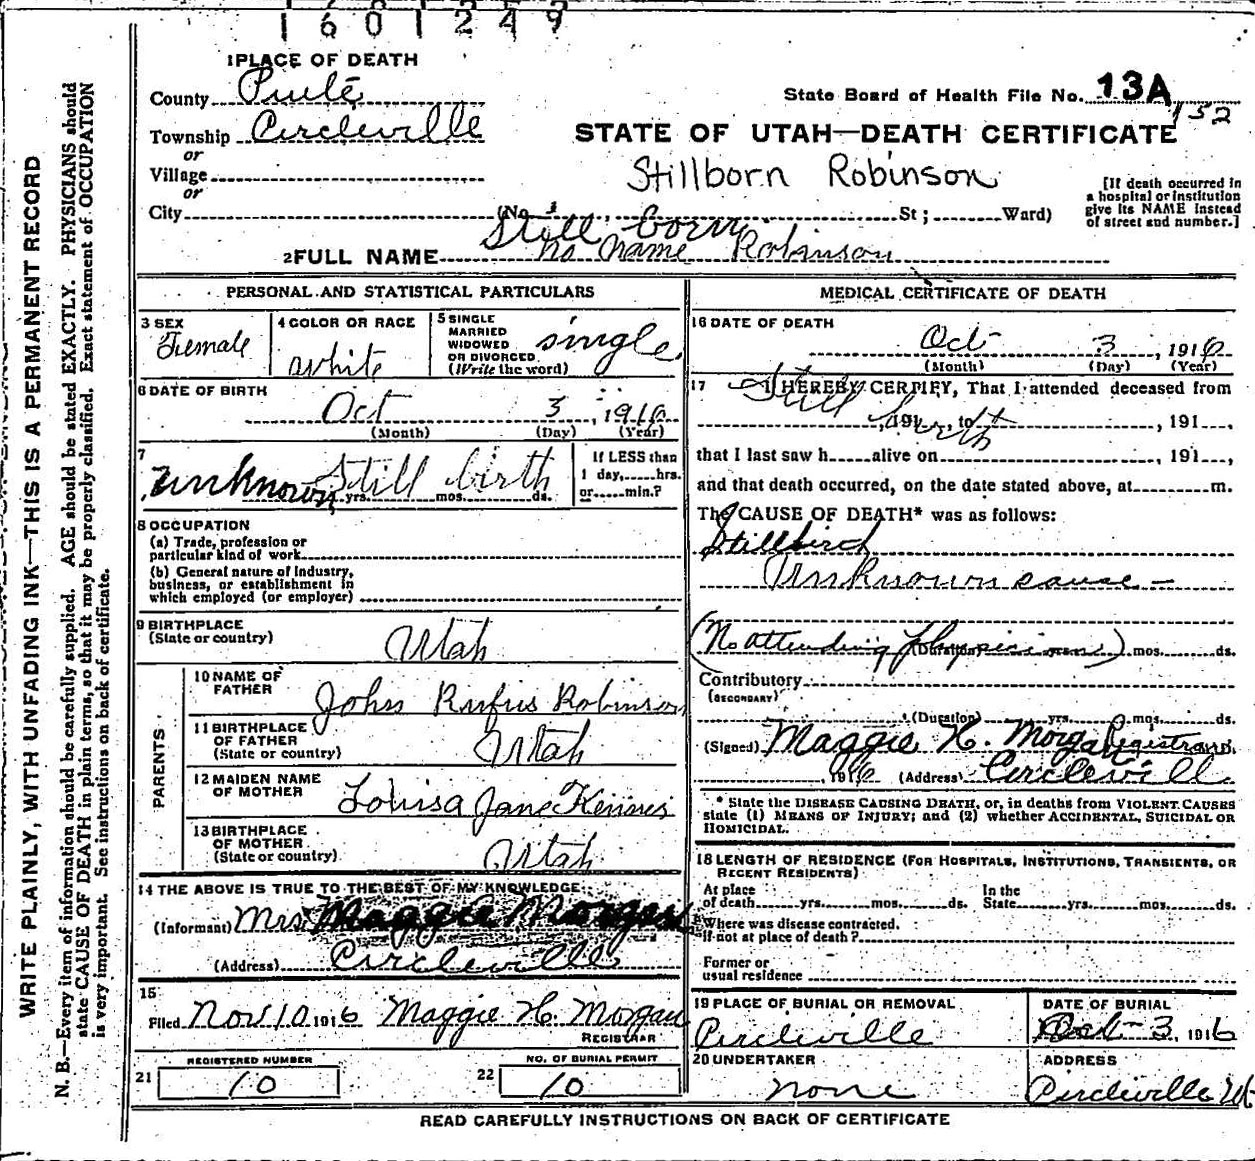 1601249
1 PLACE OF DEATH
County Piute
State Board of Health File No. 13A
152
Township Circleville
STATE OF UTAH—DEATH CERTIFICATE
or
Village
Stillborn Robinson
or
City (No. , St; Ward)
[If death occurred in
a hospital or institution
give its NAME instead
of street and number.]
Still born
2 FULL NAME no name Robinson
PERSONAL AND STATISTICAL PARTICULARS
3 SEX
Female
4 COLOR OR RACE
white
5 SINGLE
MARRIED
WIDOWED
OR DIVORCED
(Write the word)
single
6 DATE OF BIRTH
Oct 3, 1916
(Month) (Day) (Year)
7
unknown Still birth
yrs. mos. ds.
If LESS than
1 day, hrs.
or min.?
8 OCCUPATION
(a) Trade, profession or
particular kind of work
(b) General nature of Industry,
business, or establishment in
which employed (or employer)
9 BIRTHPLACE
(State or country)
Utah
PARENTS
10 NAME OF
FATHER
John Rufus Robinson
11 BIRTHPLACE
OF FATHER
(State or country)
Utah
12 MAIDEN NAME
OF MOTHER
Louisa Jane
13 BIRTHPLACE
OF MOTHER
(State or country)
Utah
14 THE ABOVE IS TRUE TO THE BEST OF MY KNOWLEDGE
(Informant) Mrs Maggie Morgan
(Address) Circleville
15
Filed Nov 10 1916 Maggie H. Morgan
REGISTRAR
REGISTERED NUMBER
21 10
NO. OF BURIAL PERMIT
22 10
MEDICAL CERTIFICATE OF DEATH
16 DATE OF DEATH
Oct 3, 1916
(Month) (Day) (Year)
17 I HEREBY CERTIFY, That I attended deceased from
Still birth
, 191 , to , 191 ,
that I last saw h alive on , 191 ,
and that death occurred, on the date stated above, at m.
The CAUSE OF DEATH* was as follows:
Stillbirth
Unknown cause —
(No attending physician)
(Duration) yrs. mos. ds.
Contributory
(SECONDARY)
(Duration) yrs. mos. ds.
(Signed) Maggie H. Morgan Registrar
, 1916 (Address) Circleville
* State the DISEASE CAUSING DEATH, or, in deaths from VIOLENT CAUSES
state (1) MEANS OF INJURY; and (2) whether ACCIDENTAL, SUICIDAL OR
HOMICIDAL.
18 LENGTH OF RESIDENCE (FOR HOSPITALS, INSTITUTIONS, TRANSIENTS, OR
RECENT RESIDENTS)
At place
of death yrs. mos. ds.
In the
State yrs. mos. ds.
Where was disease contracted.
If not at place of death?
Former or
usual residence
19 PLACE OF BURIAL OR REMOVAL
Circleville
DATE OF BURIAL
Oct 3, 1916
20 UNDERTAKER
none
ADDRESS
Circleville Ut.
READ CAREFULLY INSTRUCTIONS ON BACK OF CERTIFICATE
WRITE PLAINLY, WITH UNFADING INK—THIS IS A PERMANENT RECORD
N. B.—Every item of information should be carefully supplied. AGE should be stated EXACTLY. PHYSICIANS should
state CAUSE OF DEATH in plain terms, so that it may be properly classified. Exact statement of OCCUPATION
is very important. See instructions on back of certificate.